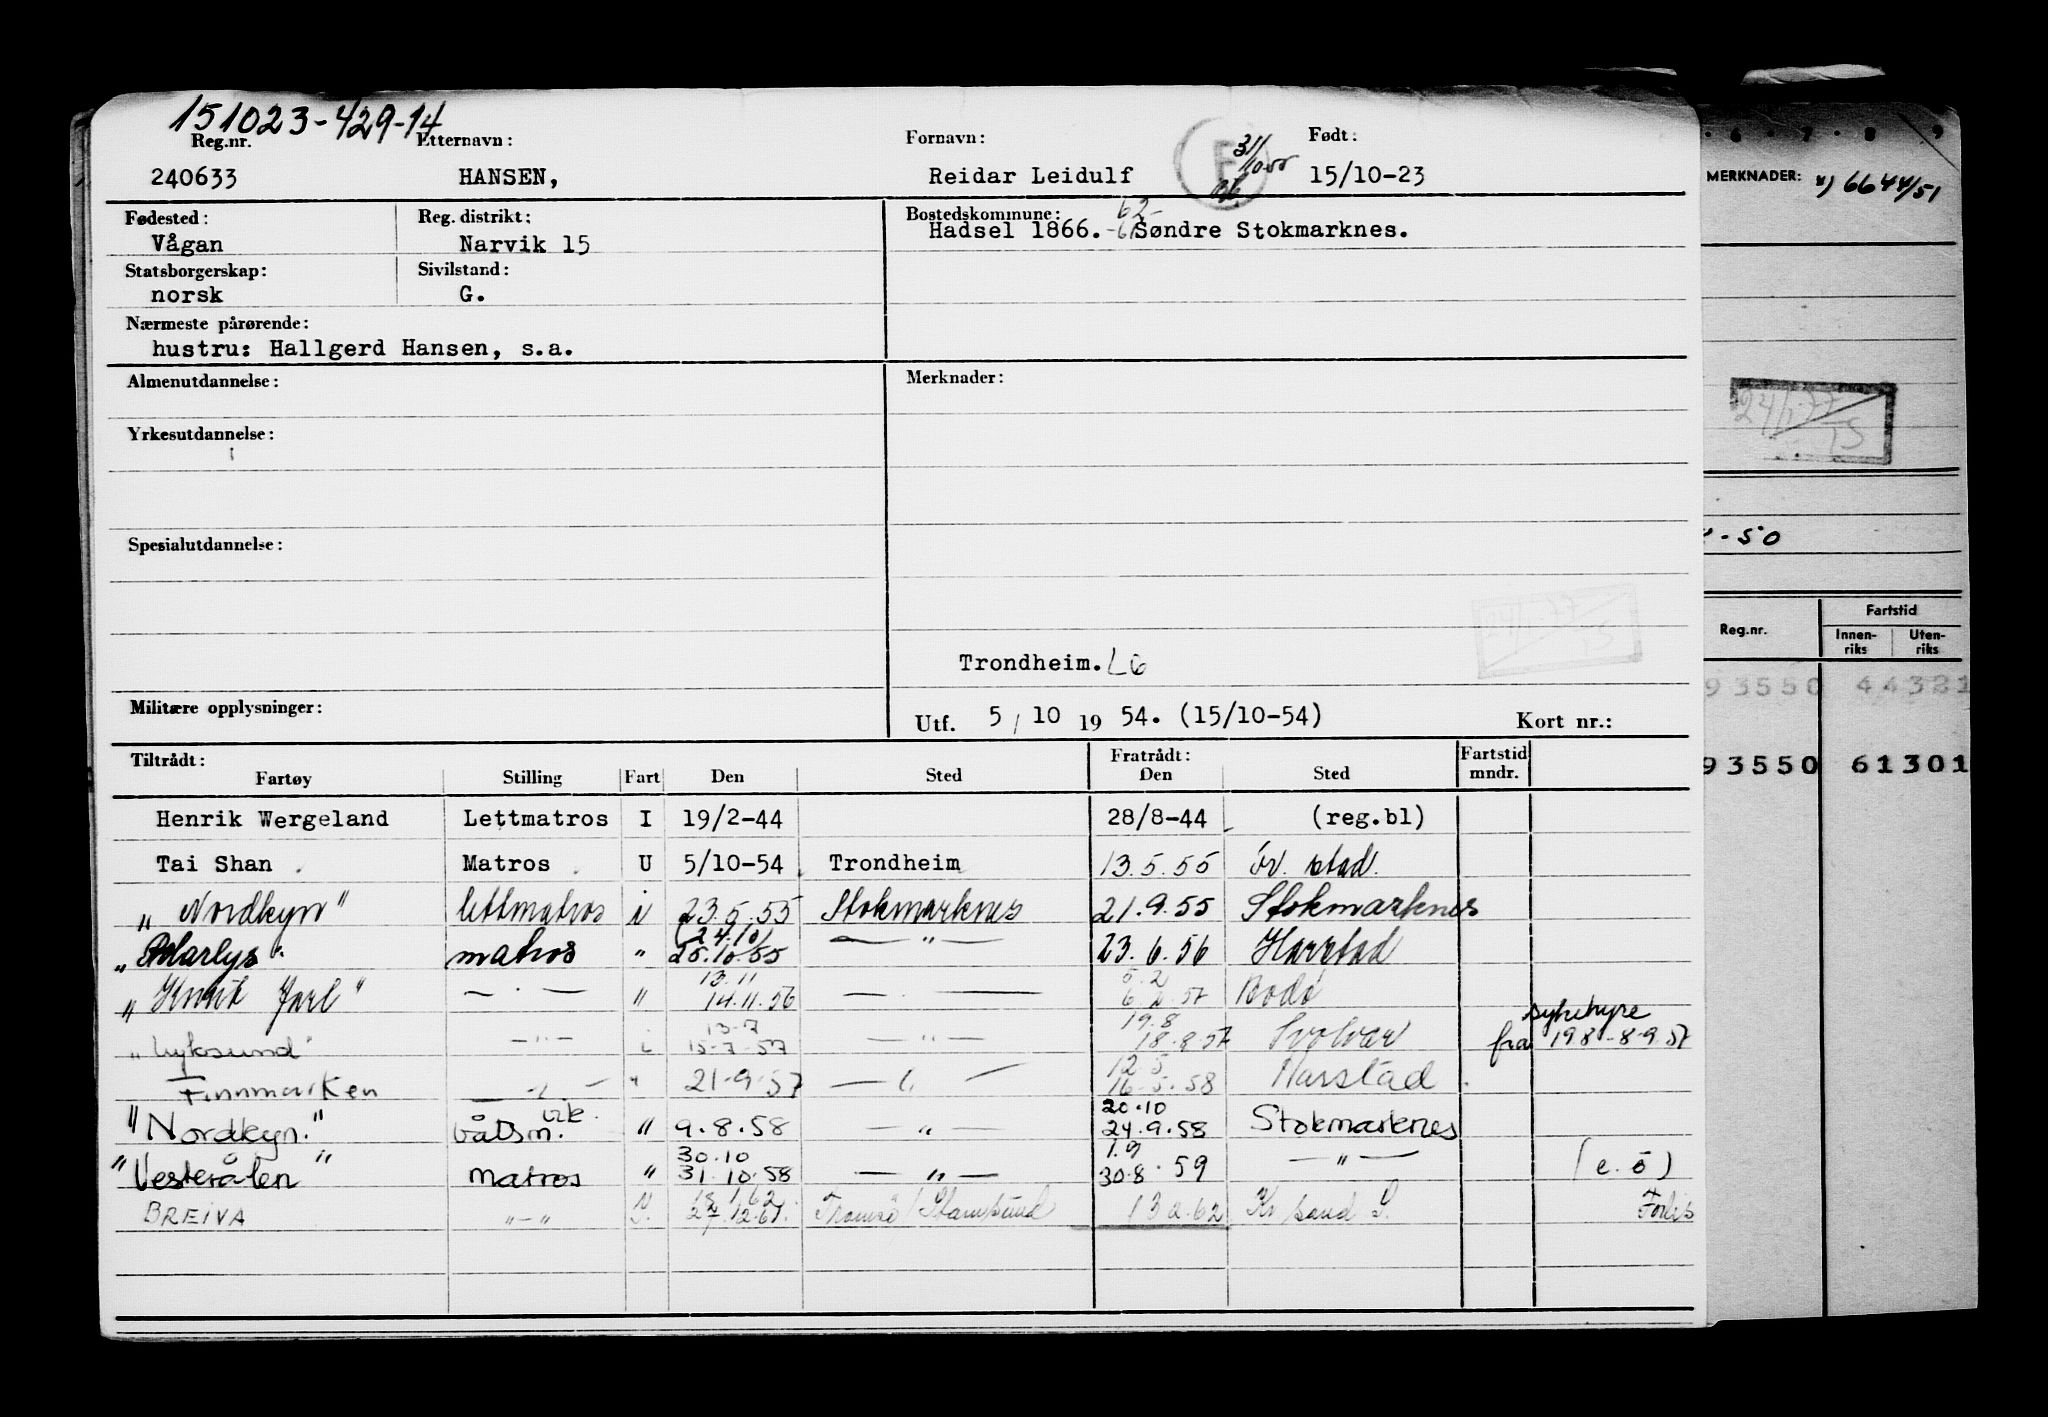 151023-429-14
Reg.nr. Etternavn: Fornavn: Født:
240633 HANSEN, Reidar Leidulf F 31/10-55 15/10-23
MERKNADER: x) 6644/51
Fødested: Reg. distrikt: Bostedskommune: 62-
Vågan Narvik 15 Hadsel 1866. Søndre Stokmarknes.
Statsborgerskap: Sivilstand:
norsk G.
Nærmeste pårørende:
hustru: Hallgerd Hansen, s.a.
Almenutdannelse: Merknader:
24/1-77
75
Yrkesutdannelse:
Spesialutdannelse:
-50
Reg.nr. Fartstid
Innen-riks Uten-riks
Trondheim. LG
93550 44321
Militære opplysninger:
Utf. 5/10 1954. (15/10-54) Kort nr.:
93550 61301
Tiltrådt: Fratrådt: Fartstid
Fartøy Stilling Fart Den Sted Den Sted mndr.
Henrik Wergeland Lettmatros I 19/2-44 28/8-44 (reg.bl)
Tai Shan Matros U 5/10-54 Trondheim 13.5.55 Øv. stad.
„Nordkyn" lettmatros i 23.5.55 Stokmarknes 21.9.55 Stokmarknes
(24.10)
„Polarlys" matros " 25.10.55 — " — 23.6.56 Harstad
13.11 5.2
„Knut Jarl" — . — " 14.11.56 — . — 6.2.57 Bodø
13-7 19.8 sykehyre
„Lyksund" — " — i 15-7-57 — " — 18.8.57 Svolvær fra 19.8-8.9.57
12.5
Finnmarken — " — " 21-9-57 — " — 16-5-58 Harstad
vik. 20.10
"Nordkyn." båtsm. " 9.8.58 — " — 24.9.58 Stokmarknes
30.10 1.9
"Vesterålen" Matros " 31.10.58 — " — 30.8.59 — " — (e.ø)
1.62
BREIVA " - " 12.61. Tromsø / Stamsund 13 2.62 Kr sand S. Forlis